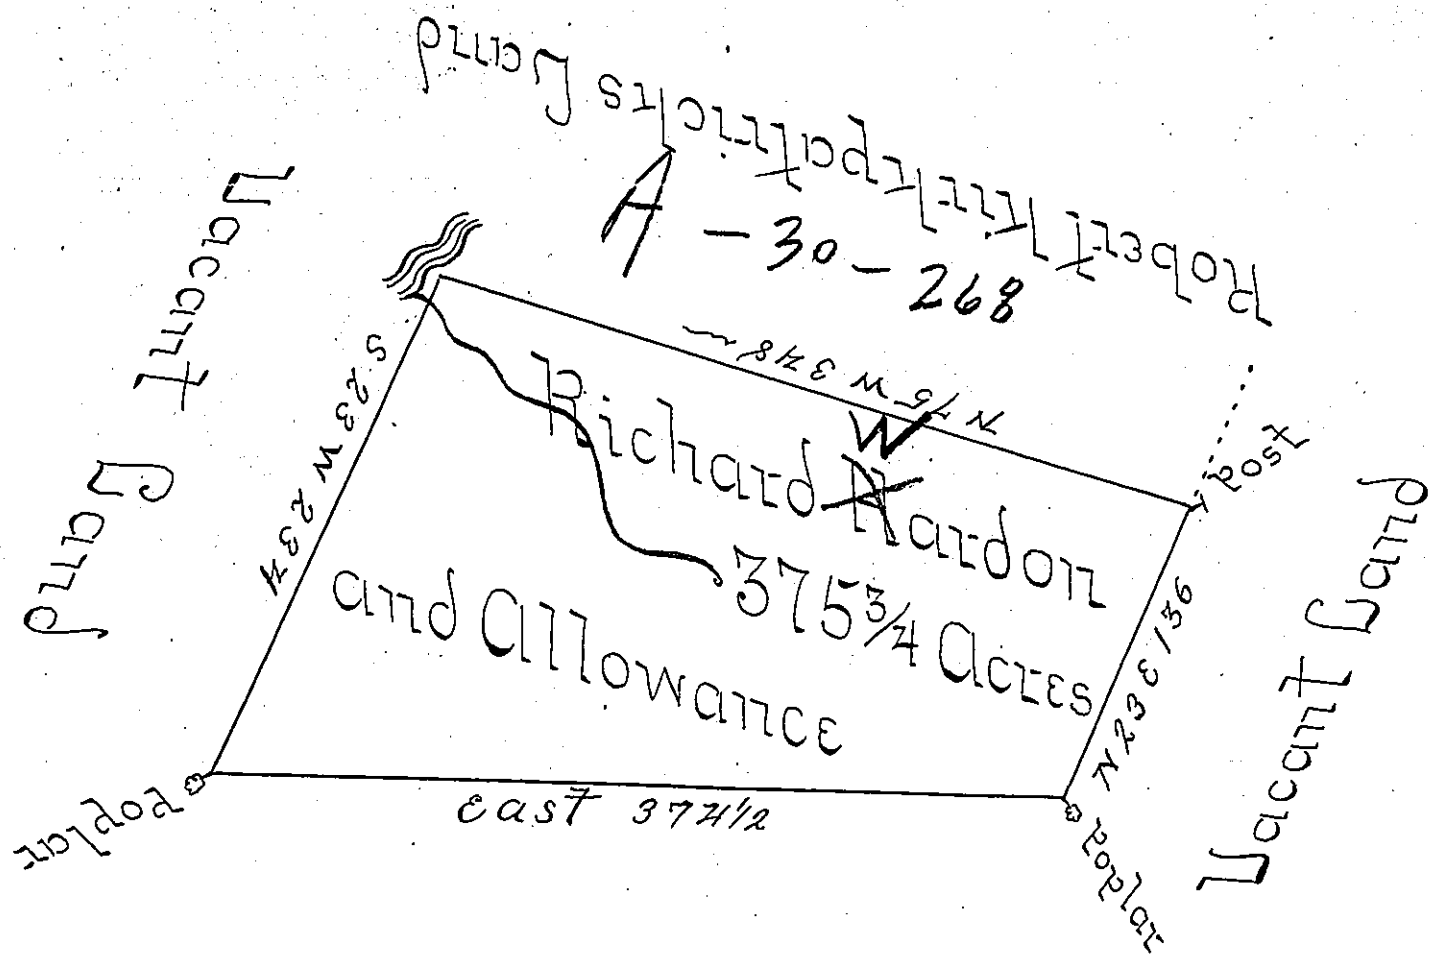 Robert Kirkpatricks Land
A - 30 - 268
N 75 W 348
Vacant Land
S 23 W 234
Richard Hardon
W
375 3/4 Acres
and Allowance
post
N 23 E 136
Vacant Land
poplar
East 374 1/2
poplar